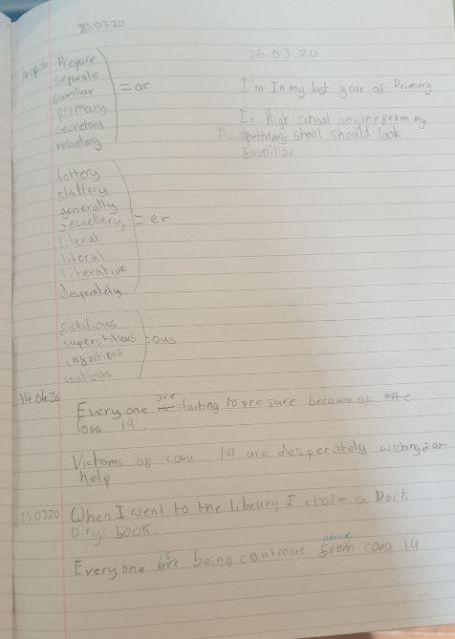 23.03.20
26.03.20
Prepare
Separate
familiar
primary
secretary
voluntary
= ar
I'm In my last year of Primary
In High school anyone from my
primary shool should look
familiar.
lottery
slattery
generally
jewellery
literal
literal
literative
desperately
= er
fictitious
superstitious
infectious
cautious
= ous
14.04.20
Everyone are starting to prepare because of the
Cova 19.
Victoms of cova 19 are desperately wishing for
help
25.03.20
When I went to the library I chose a Dork
Dirys book.
Everyone are is being coutious about from cova 19